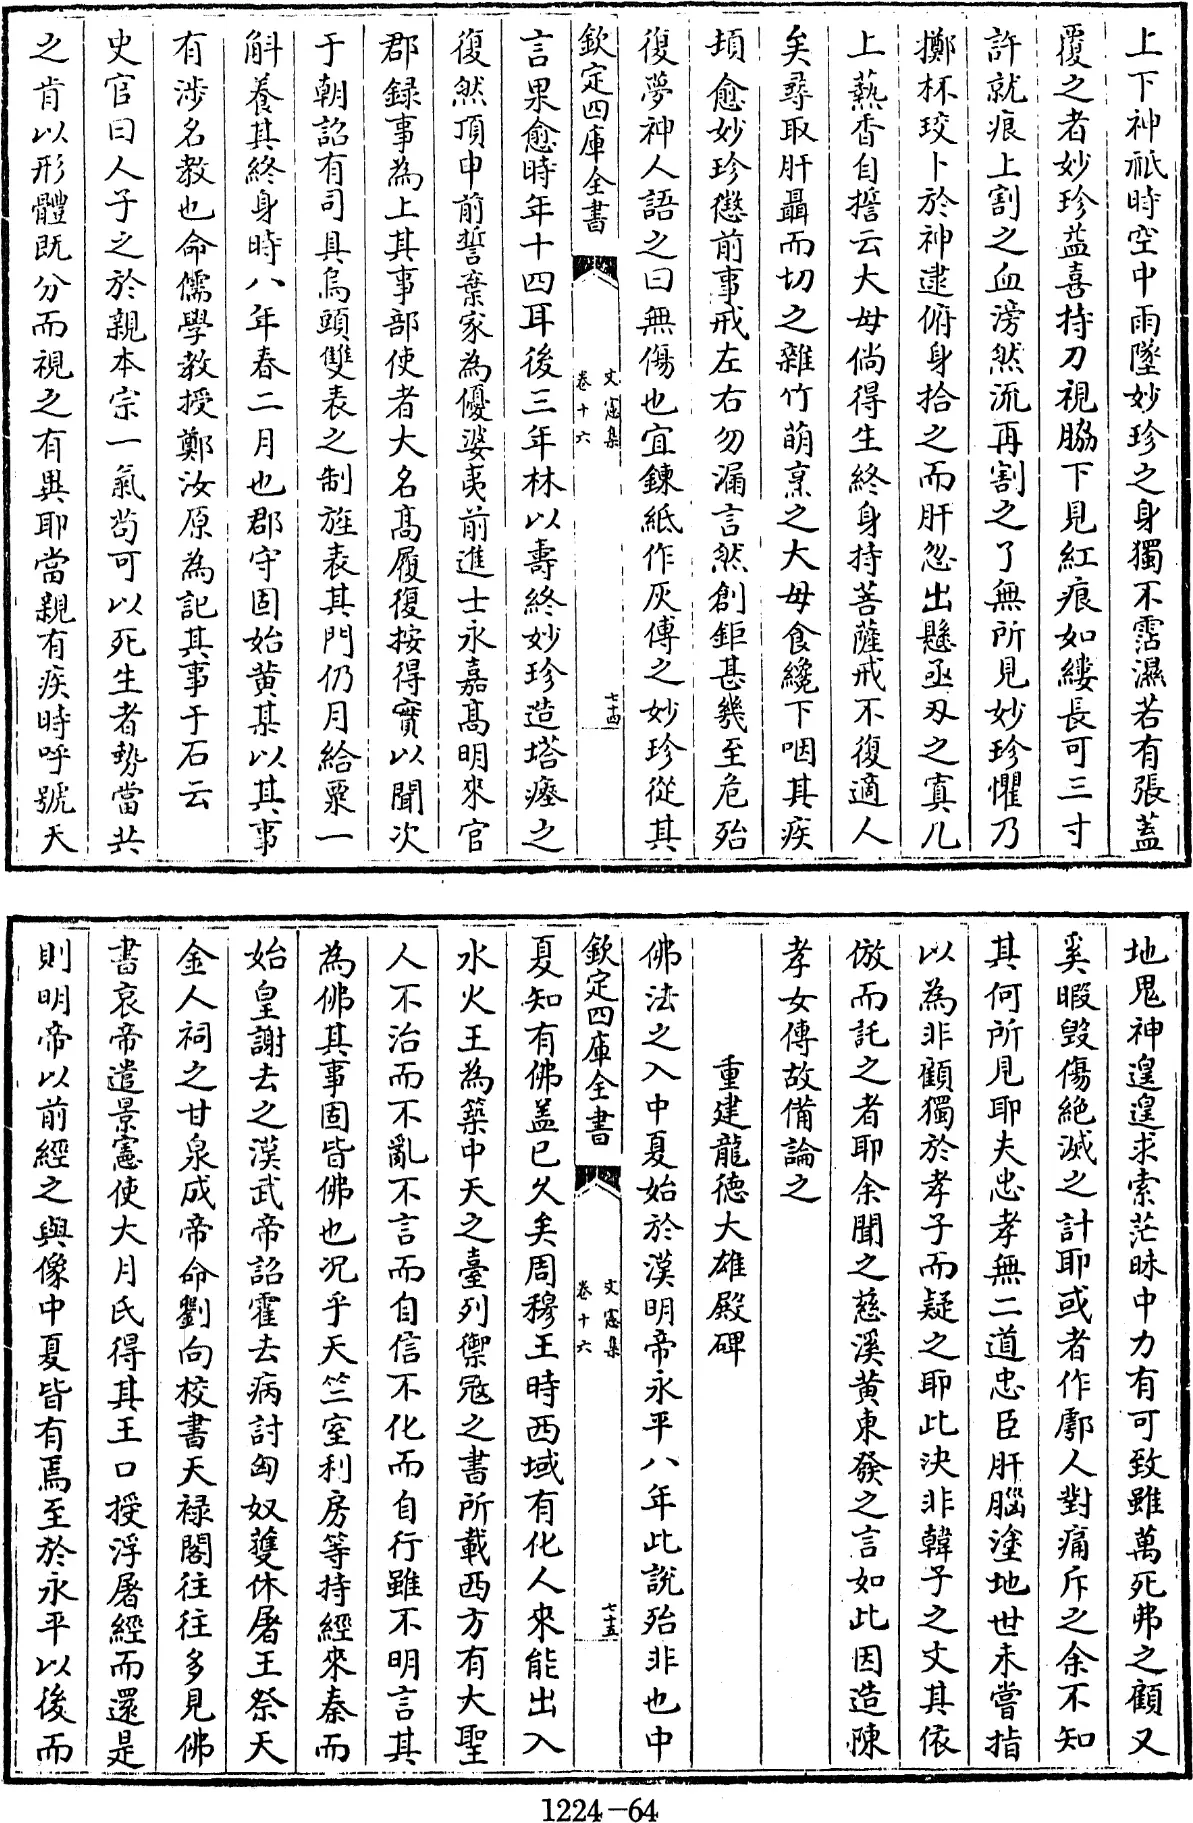 上下神祇時空中雨墜妙珍之身獨不霑濕若有張葢
覆之者妙珍益喜持刀視脇下見紅痕如縷長可三寸
許就痕上割之血滂然流再割之了無所見妙珍懼乃
擲杯珓卜於神逮俯身拾之而肝忽出懸亟刄之寘几
上爇香自誓云大母倘得生終身持菩薩戒不復適人
矣尋取肝聶而切之雜竹萌烹之大母食纔下咽其疾
頓愈妙珍懲前事戒左右勿漏言然創鉅甚幾至危殆
復夢神人語之曰無傷也宜鍊紙作灰傅之妙珍從其
欽定四庫全書
文憲集
卷十六
七十四
言果愈時年十四耳後三年林以壽終妙珍造塔瘞之
復然頂申前誓棄家為優婆夷前進士永嘉髙明來官
郡録事為上其事部使者大名髙履復按得實以聞次
于朝詔有司具烏頭雙表之制旌表其門仍月給粟一
斛養其終身時八年春二月也郡守固始黄某以其事
有涉名教也命儒學教授鄭汝原為記其事于石云
史官曰人子之於親本宗一氣茍可以死生者勢當共
之肯以形體既分而視之有異耶當親有疾時呼號天
地鬼神遑遑求索茫昧中力有可致雖萬死弗之顧又
奚暇毀傷絶滅之計耶或者作鄠人對痛斥之余不知
其何所見耶夫忠孝無二道忠臣肝腦塗地世未嘗指
以為非顧獨於孝子而疑之耶此決非韓子之文其依
倣而託之者耶余聞之慈溪黄東發之言如此因造陳
孝女傳故備論之
重建龍德大雄殿碑
佛法之入中夏始於漢明帝永平八年此說殆非也中
欽定四庫全書
文憲集
卷十六
七十五
夏知有佛葢已久矣周穆王時西域有化人來能出入
水火王為築中天之臺列禦冦之書所載西方有大聖
人不治而不亂不言而自信不化而自行雖不明言其
為佛其事固皆佛也况乎天竺室利房等持經來秦而
始皇謝去之漢武帝詔霍去病討匈奴獲休屠王祭天
金人祠之甘泉成帝命劉向校書天禄閣往往多見佛
書哀帝遣景憲使大月氏得其王口授浮屠經而還是
則明帝以前經之與像中夏皆有焉至於永平以後而
1224-64